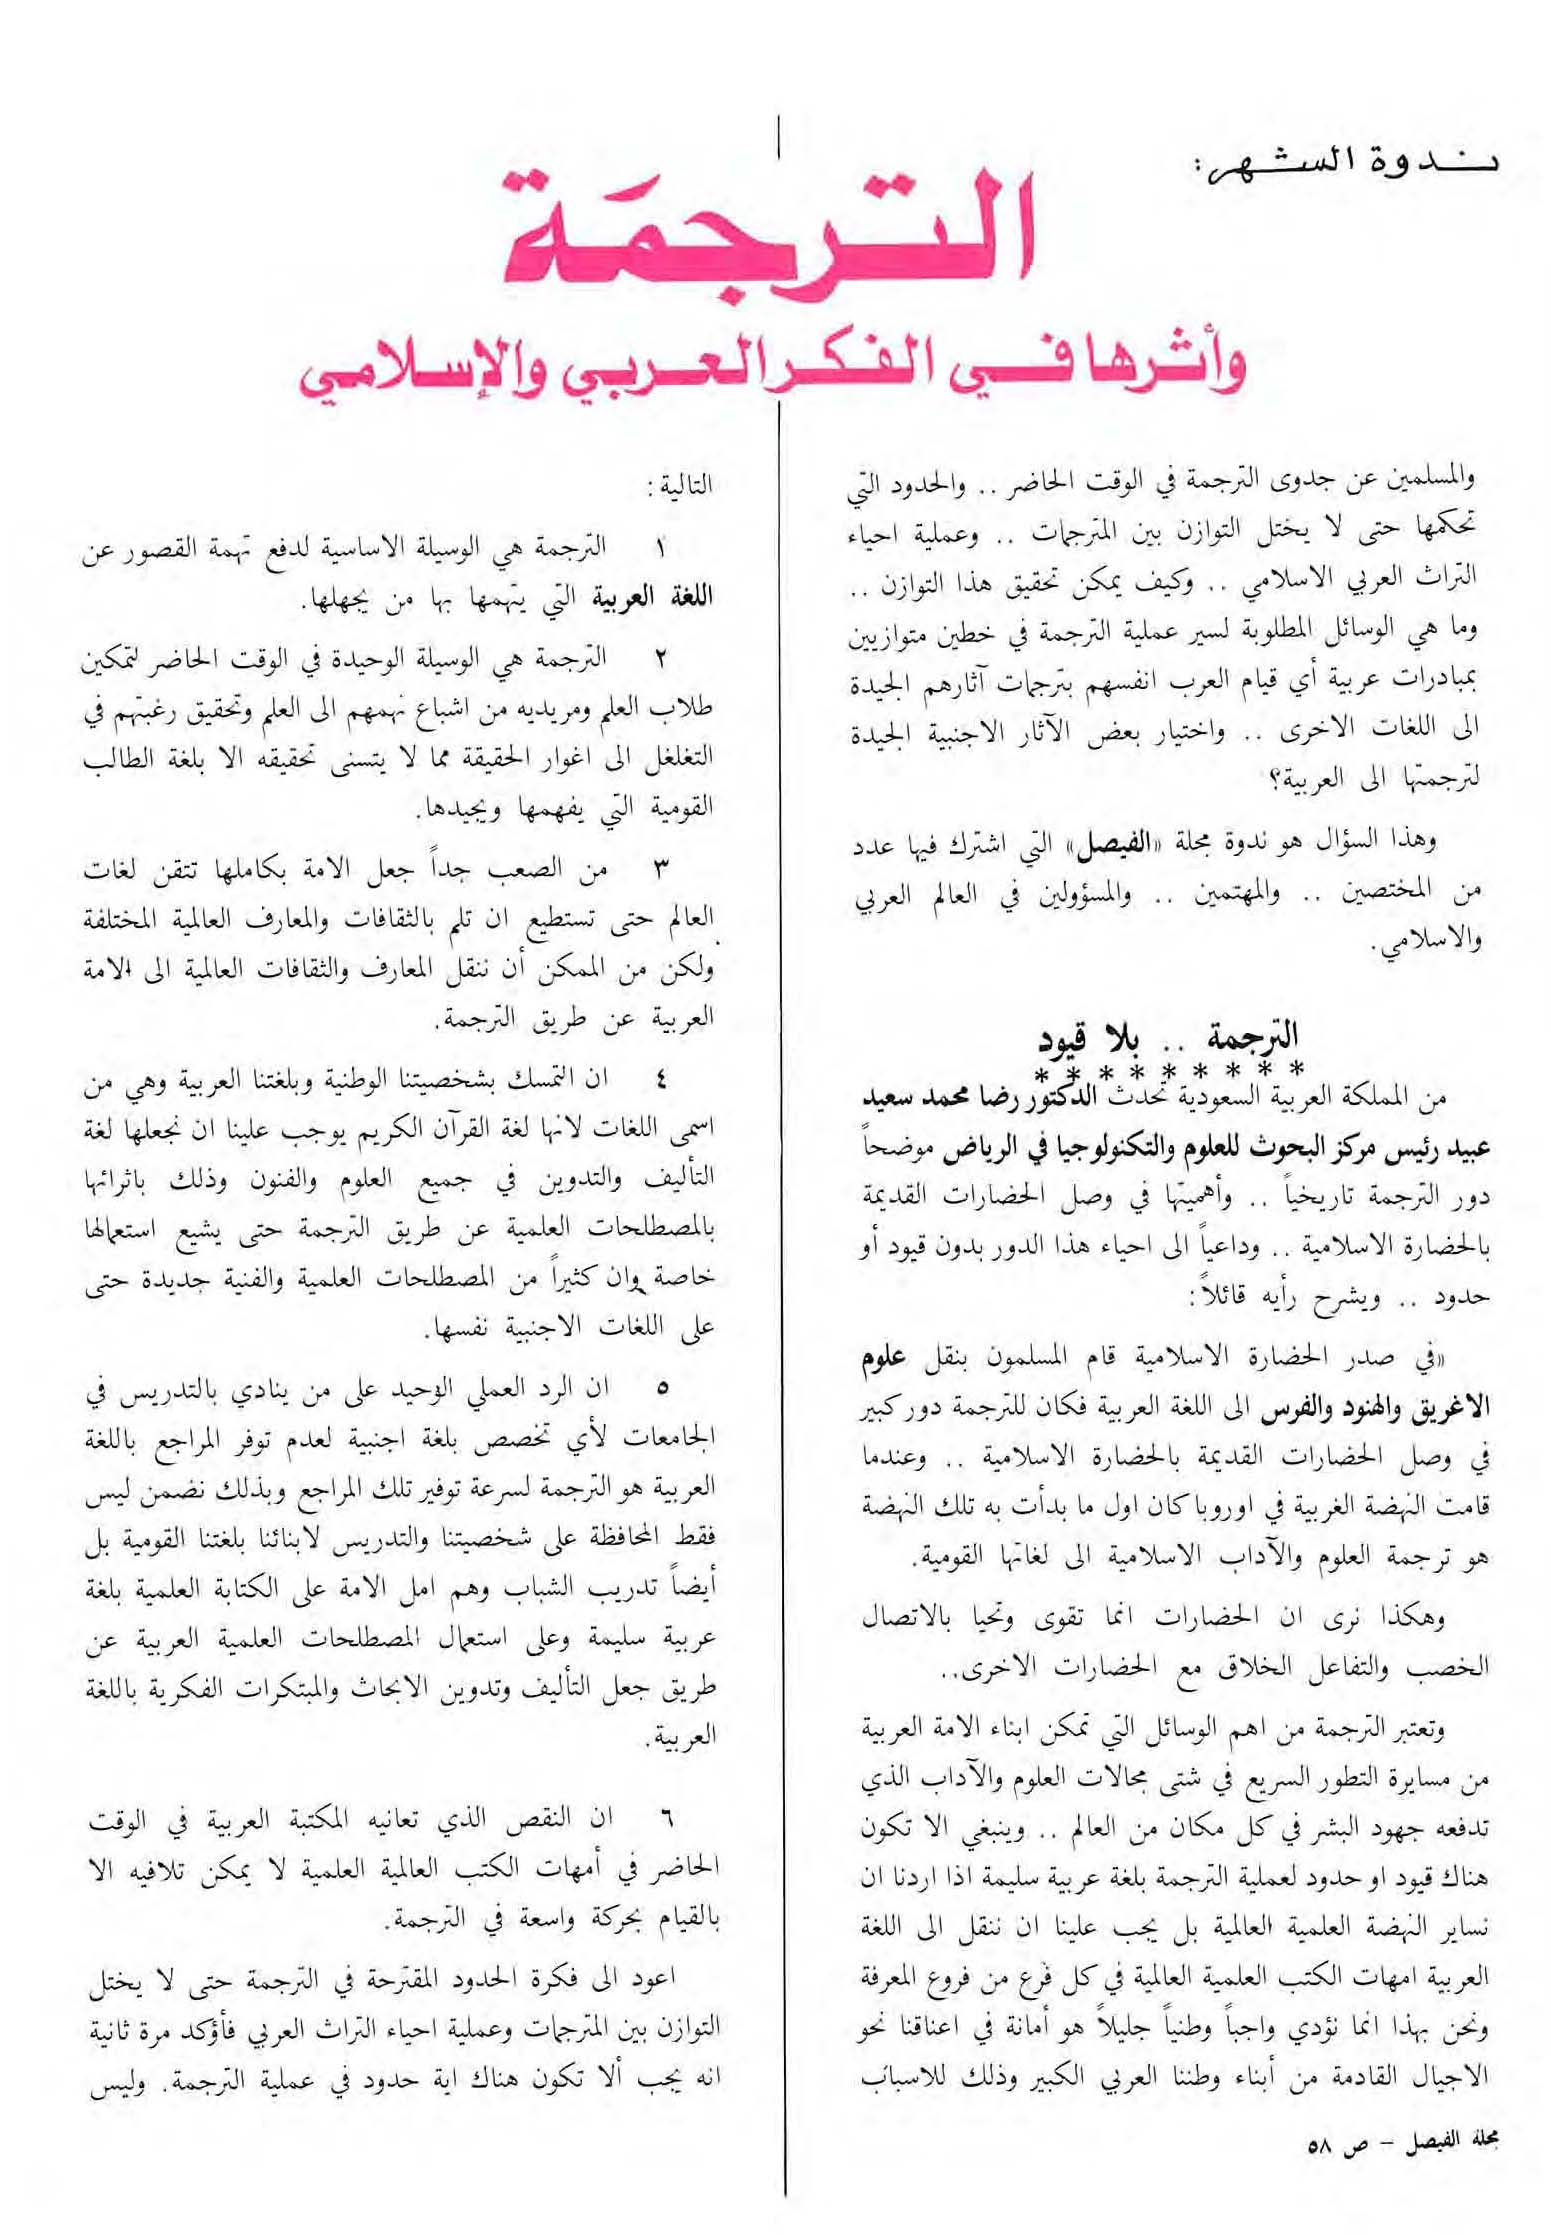 ندوة الشهر:
الترجمَة
وأثرها في الفكر العربي والإسلامي
والمسلمين عن جدوى الترجمة في الوقت الحاضر .. والحدود التي
تحكمها حتى لا يختل التوازن بين المترجمات .. وعملية احياء
التراث العربي الاسلامي .. وكيف يمكن تحقيق هذا التوازن ..
وما هي الوسائل المطلوبة لسير عملية الترجمة في خطين متوازيين
بمبادرات عربية أي قيام العرب انفسهم بترجمات آثارهم الجيدة
الى اللغات الاخرى .. واختيار بعض الآثار الاجنبية الجيدة
لترجمتها الى العربية؟
وهذا السؤال هو ندوة مجلة «الفيصل» التي اشترك فيها عدد
من المختصين .. والمهتمين .. والمسؤولين في العالم العربي
والاسلامي.
الترجمة .. بلا قيود
* * * * * * * * *
من المملكة العربية السعودية تحدث الدكتور رضا محمد سعيد
عبيد رئيس مركز البحوث للعلوم والتكنولوجيا في الرياض موضحاً
دور الترجمة تاريخياً .. وأهميتها في وصل الحضارات القديمة
بالحضارة الاسلامية .. وداعياً الى احياء هذا الدور بدون قيود أو
حدود .. ويشرح رأيه قائلاً:
«في صدر الحضارة الاسلامية قام المسلمون بنقل علوم
الاغريق والهنود والفرس الى اللغة العربية فكان للترجمة دور كبير
في وصل الحضارات القديمة بالحضارة الاسلامية .. وعندما
قامت النهضة الغربية في اوروبا كان اول ما بدأت به تلك النهضة
هو ترجمة العلوم والآداب الاسلامية الى لغاتها القومية.
وهكذا نرى ان الحضارات انما تقوى وتحيا بالاتصال
الخصب والتفاعل الخلاق مع الحضارات الاخرى..
وتعتبر الترجمة من اهم الوسائل التي تمكن ابناء الامة العربية
من مسايرة التطور السريع في شتى مجالات العلوم والآداب الذي
تدفعه جهود البشر في كل مكان من العالم .. وينبغي الا تكون
هناك قيود او حدود لعملية الترجمة بلغة عربية سليمة اذا اردنا ان
نساير النهضة العلمية العالمية بل يجب علينا ان ننقل الى اللغة
العربية امهات الكتب العلمية العالمية في كل فرع من فروع المعرفة
ونحن بهذا انما نؤدي واجباً وطنياً جليلاً هو أمانة في اعناقنا نحو
الاجيال القادمة من أبناء وطننا العربي الكبير وذلك للاسباب
التالية:
١ الترجمة هي الوسيلة الاساسية لدفع تهمة القصور عن
اللغة العربية التي يتهمها بها من يجهلها.
٢ الترجمة هي الوسيلة الوحيدة في الوقت الحاضر لتمكين
طلاب العلم ومريديه من اشباع نهمهم الى العلم وتحقيق رغبتهم في
التغلغل الى اغوار الحقيقة مما لا يتسنى تحقيقه الا بلغة الطالب
القومية التي يفهمها ويجيدها.
٣ من الصعب جداً جعل الامة بكاملها تتقن لغات
العالم حتى تستطيع ان تلم بالثقافات والمعارف العالمية المختلفة
ولكن من الممكن أن ننقل المعارف والثقافات العالمية الى الامة
العربية عن طريق الترجمة.
٤ ان التمسك بشخصيتنا الوطنية وبلغتنا العربية وهي من
اسمى اللغات لانها لغة القرآن الكريم يوجب علينا ان نجعلها لغة
التأليف والتدوين في جميع العلوم والفنون وذلك باثرائها
بالمصطلحات العلمية عن طريق الترجمة حتى يشيع استعمالها
خاصة وان كثيراً من المصطلحات العلمية والفنية جديدة حتى
على اللغات الاجنبية نفسها.
٥ ان الرد العملي الوحيد على من ينادي بالتدريس في
الجامعات لأي تخصص بلغة اجنبية لعدم توفر المراجع باللغة
العربية هو الترجمة لسرعة توفير تلك المراجع وبذلك نضمن ليس
فقط المحافظة على شخصيتنا والتدريس لابنائنا بلغتنا القومية بل
أيضاً تدريب الشباب وهم امل الامة على الكتابة العلمية بلغة
عربية سليمة وعلى استعمال المصطلحات العلمية العربية عن
طريق جعل التأليف وتدوين الابحاث والمبتكرات الفكرية باللغة
العربية.
٦ ان النقص الذي تعانيه المكتبة العربية في الوقت
الحاضر في أمهات الكتب العالمية العلمية لا يمكن تلافيه الا
بالقيام بحركة واسعة في الترجمة.
اعود الى فكرة الحدود المقترحة في الترجمة حتى لا يختل
التوازن بين المترجمات وعملية احياء التراث العربي فأؤكد مرة ثانية
انه يجب ألا تكون هناك اية حدود في عملية الترجمة. وليس
مجلة الفيصل – ص ٥٨